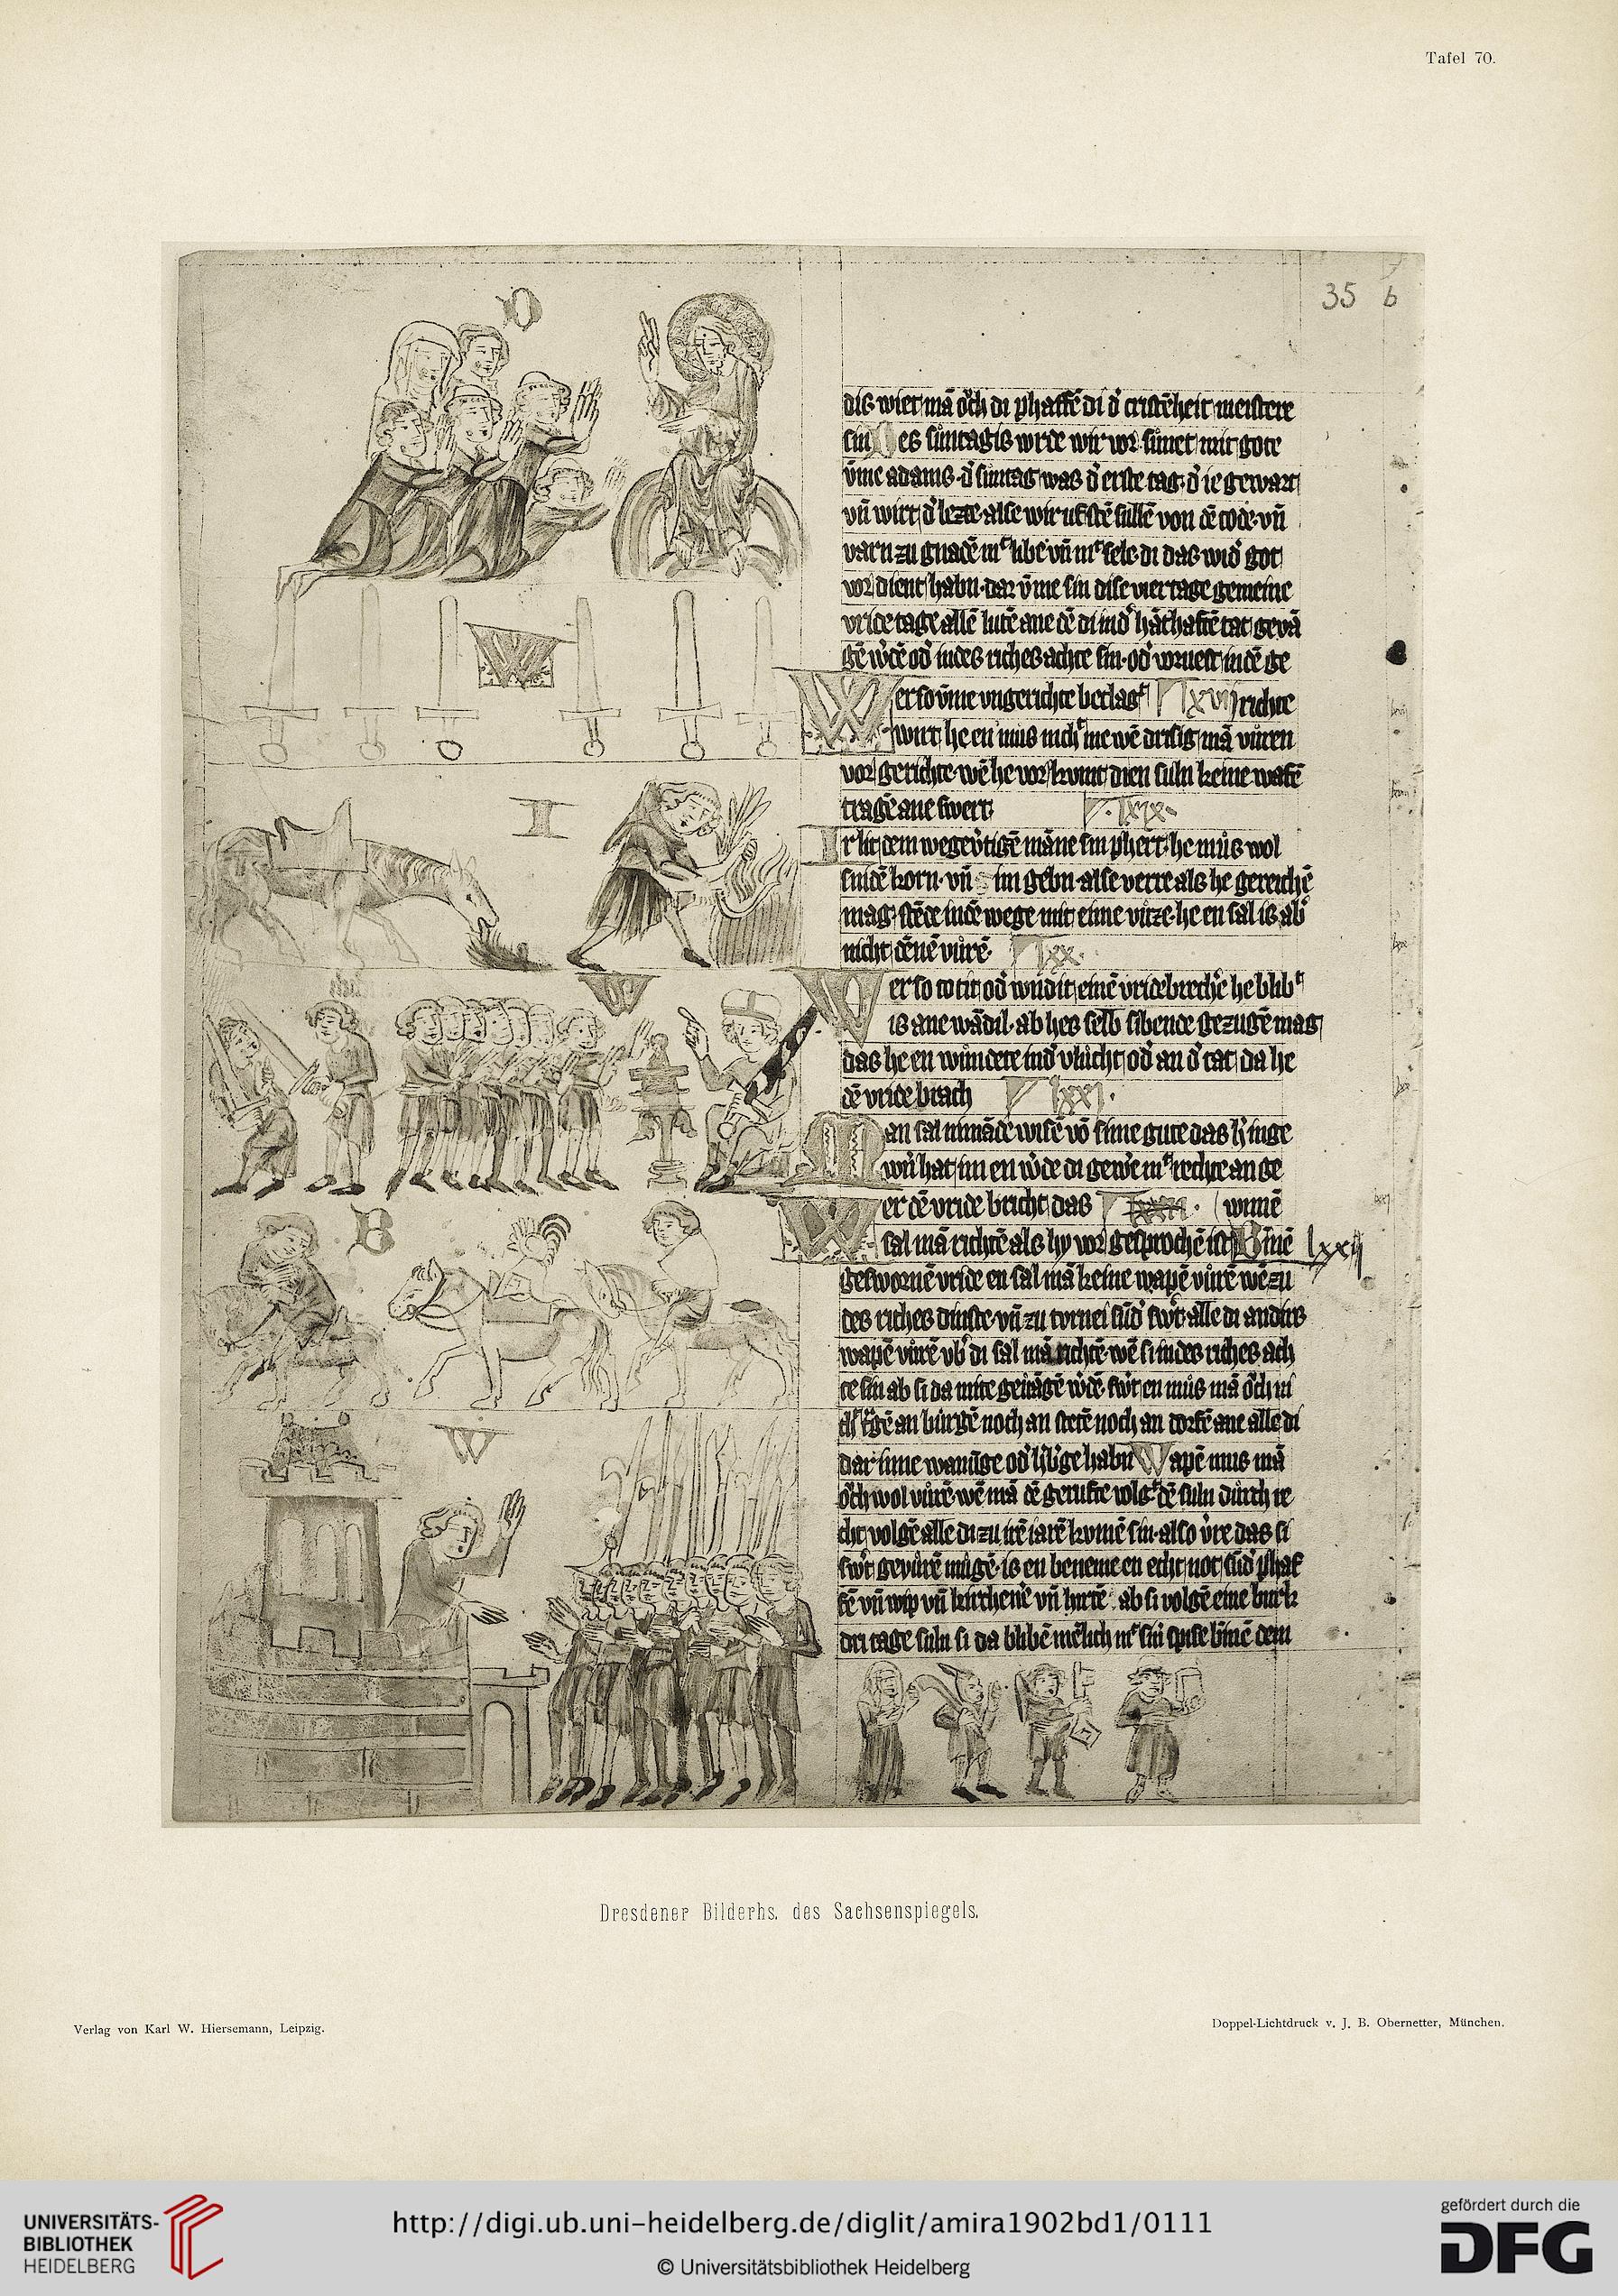 Tafel 70.
35 b
O
dis wiet mā och di phaffē di d' cristēheit meistere
sin Des suntagis wrde wir vor sunet mit gote
v̄me adamis d' suntag was d' erste tag d' ie gewart
vn̄ wirt d' lezte alse wir uf stē sullē von dē tode vn̄
varn zu gnadē mit libe vn̄ mit sele di das wid' got
vor dient habn dar v̄me sin dise vier tage gemeine
vride tage allē lutē ane dē di in d' hāthaftē tat gevā
gē w'dē od' in des riches achte sin od' vorvest in dē ge
W
Wer so v̄me ungerichte beclagt lxviij richte
wirt he en mus nicht me wē drisig mā vuren
vor gerichte wē he vor kumt dien suln keine wafē
tragē ane swert lxix
I
Irlit dem wegev'tigē māne sin phert he mus wol
snidē korn vn̄ im gebn alse verre als he gereichē
mag stēde in dē wege mit eime vuze he en sal is ab'
nicht dēne vurē lxx
W
Wer so totit od' wūdit einē vridebrech'e he blibt
is ane wādil ab he s selb sibende gezugē mag
das he en wundete in d' vlucht od' an d' tat da he
dē vride brach lxxj
Man sal nimāde wisē vō sime gute das h' in ge
wer hat im en w'de di gewere mit rechte an ge
Wer dē vride bricht das wunē
sal mā richtē als hy vor gesprochē ist Binē lxxij
B
geswornē vride en sal mā keine wapē vurē wē zu
des riches dinste vn̄ zu tornei sūd' sw't alle di andirs
wapē vurē ub' di sal mā richtē wē si in des riches ach
te sin ab si da mite gevāgē w'dē sw't en mus mā och ni
cht t'gē an burgē noch an stetē noch an dorfē ane alle di
W
dar inne wanūge od' h'b'ge habn Wapē mus mā
och wol vurē wē mā dē gerufte volgt dē suln durch re
cht volgē alle di zu irē iarē kumē sin also v're das si
sw't gevurē mugē is en beneme en echt not sūd' phaf
fē vn̄ wip vn̄ kirchen'e vn̄ hirtē ab si volgē eine burk
dri tage suln si da blibē mēlich mit sin' spise binē dem
Dresdener Bilderhs. des Sachsenspiegels.
Verlag von Karl W. Hiersemann, Leipzig.
Doppel-Lichtdruck v. J. B. Obernetter, München.
UNIVERSITÄTS-
BIBLIOTHEK
HEIDELBERG
http://digi.ub.uni-heidelberg.de/diglit/amira1902bd1/0111
© Universitätsbibliothek Heidelberg
gefördert durch die
DFG